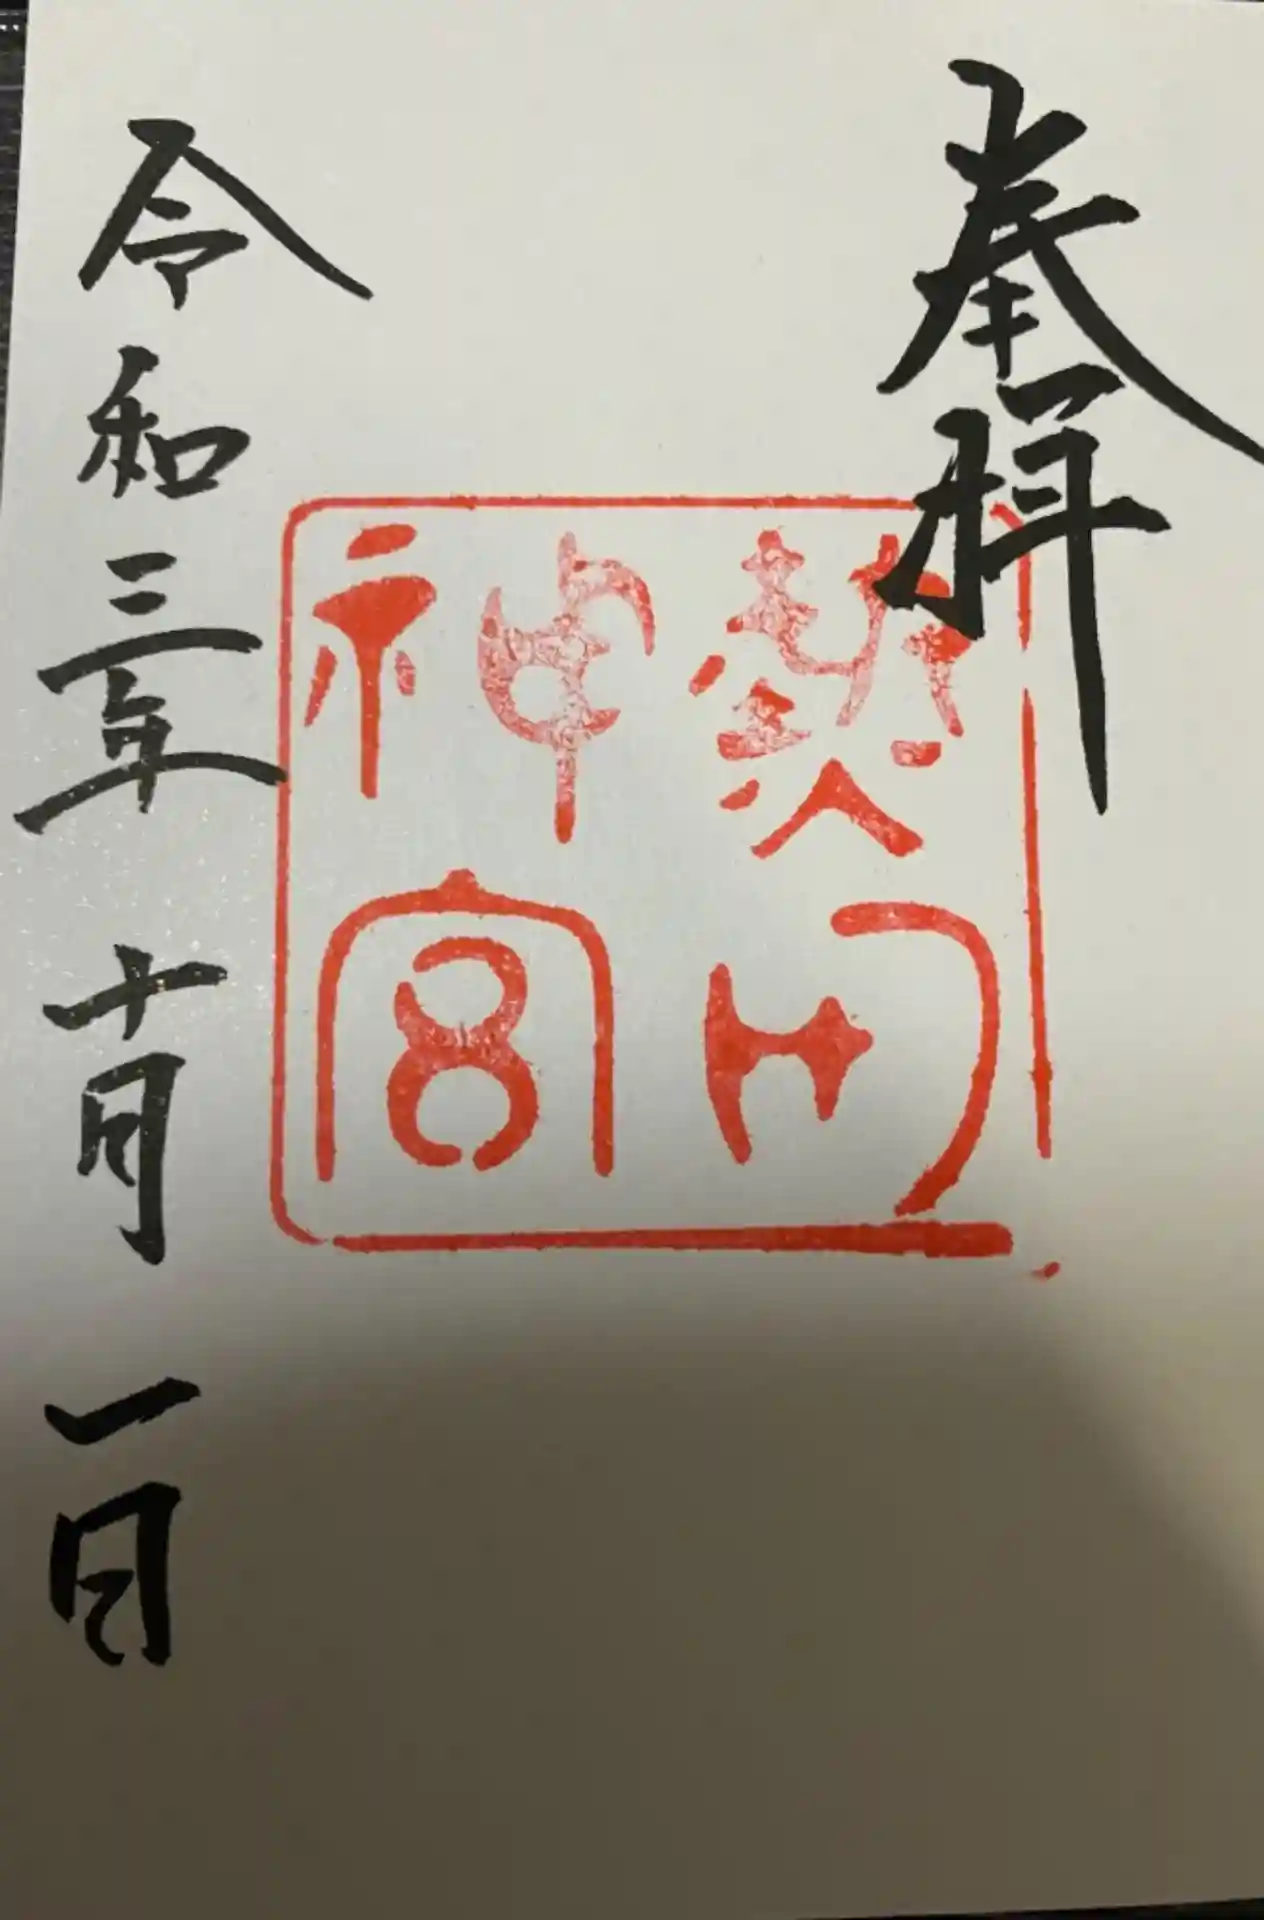 奉拝
熱田
神宮
令和三年十月一日